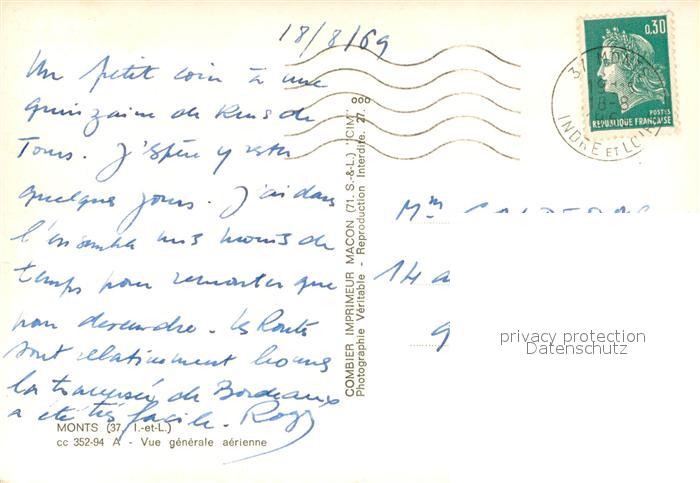 18/8/69
Un petit coin à une
quinzaine de Kms de
Tours. J'espère y rester
quelques jours. J'ai dans
l'ensemble mis moins de
temps pour remonter que
pour descendre. Les Routes
sont relativement bonnes
la traversée de Bordeaux
a été très facile.
MONTS (37. I.-et-L.)
cc 352-94 A - Vue générale aérienne
COMBIER IMPRIMEUR MACON (71. S.-&-L.) "CIM"
Photographie Véritable - Reproduction Interdite. 27.
0,30
POSTES
REPUBLIQUE FRANÇAISE
37 MONTS
18-8
INDRE ET LOIRE
Mm
14 a
9
privacy protection
Datenschutz